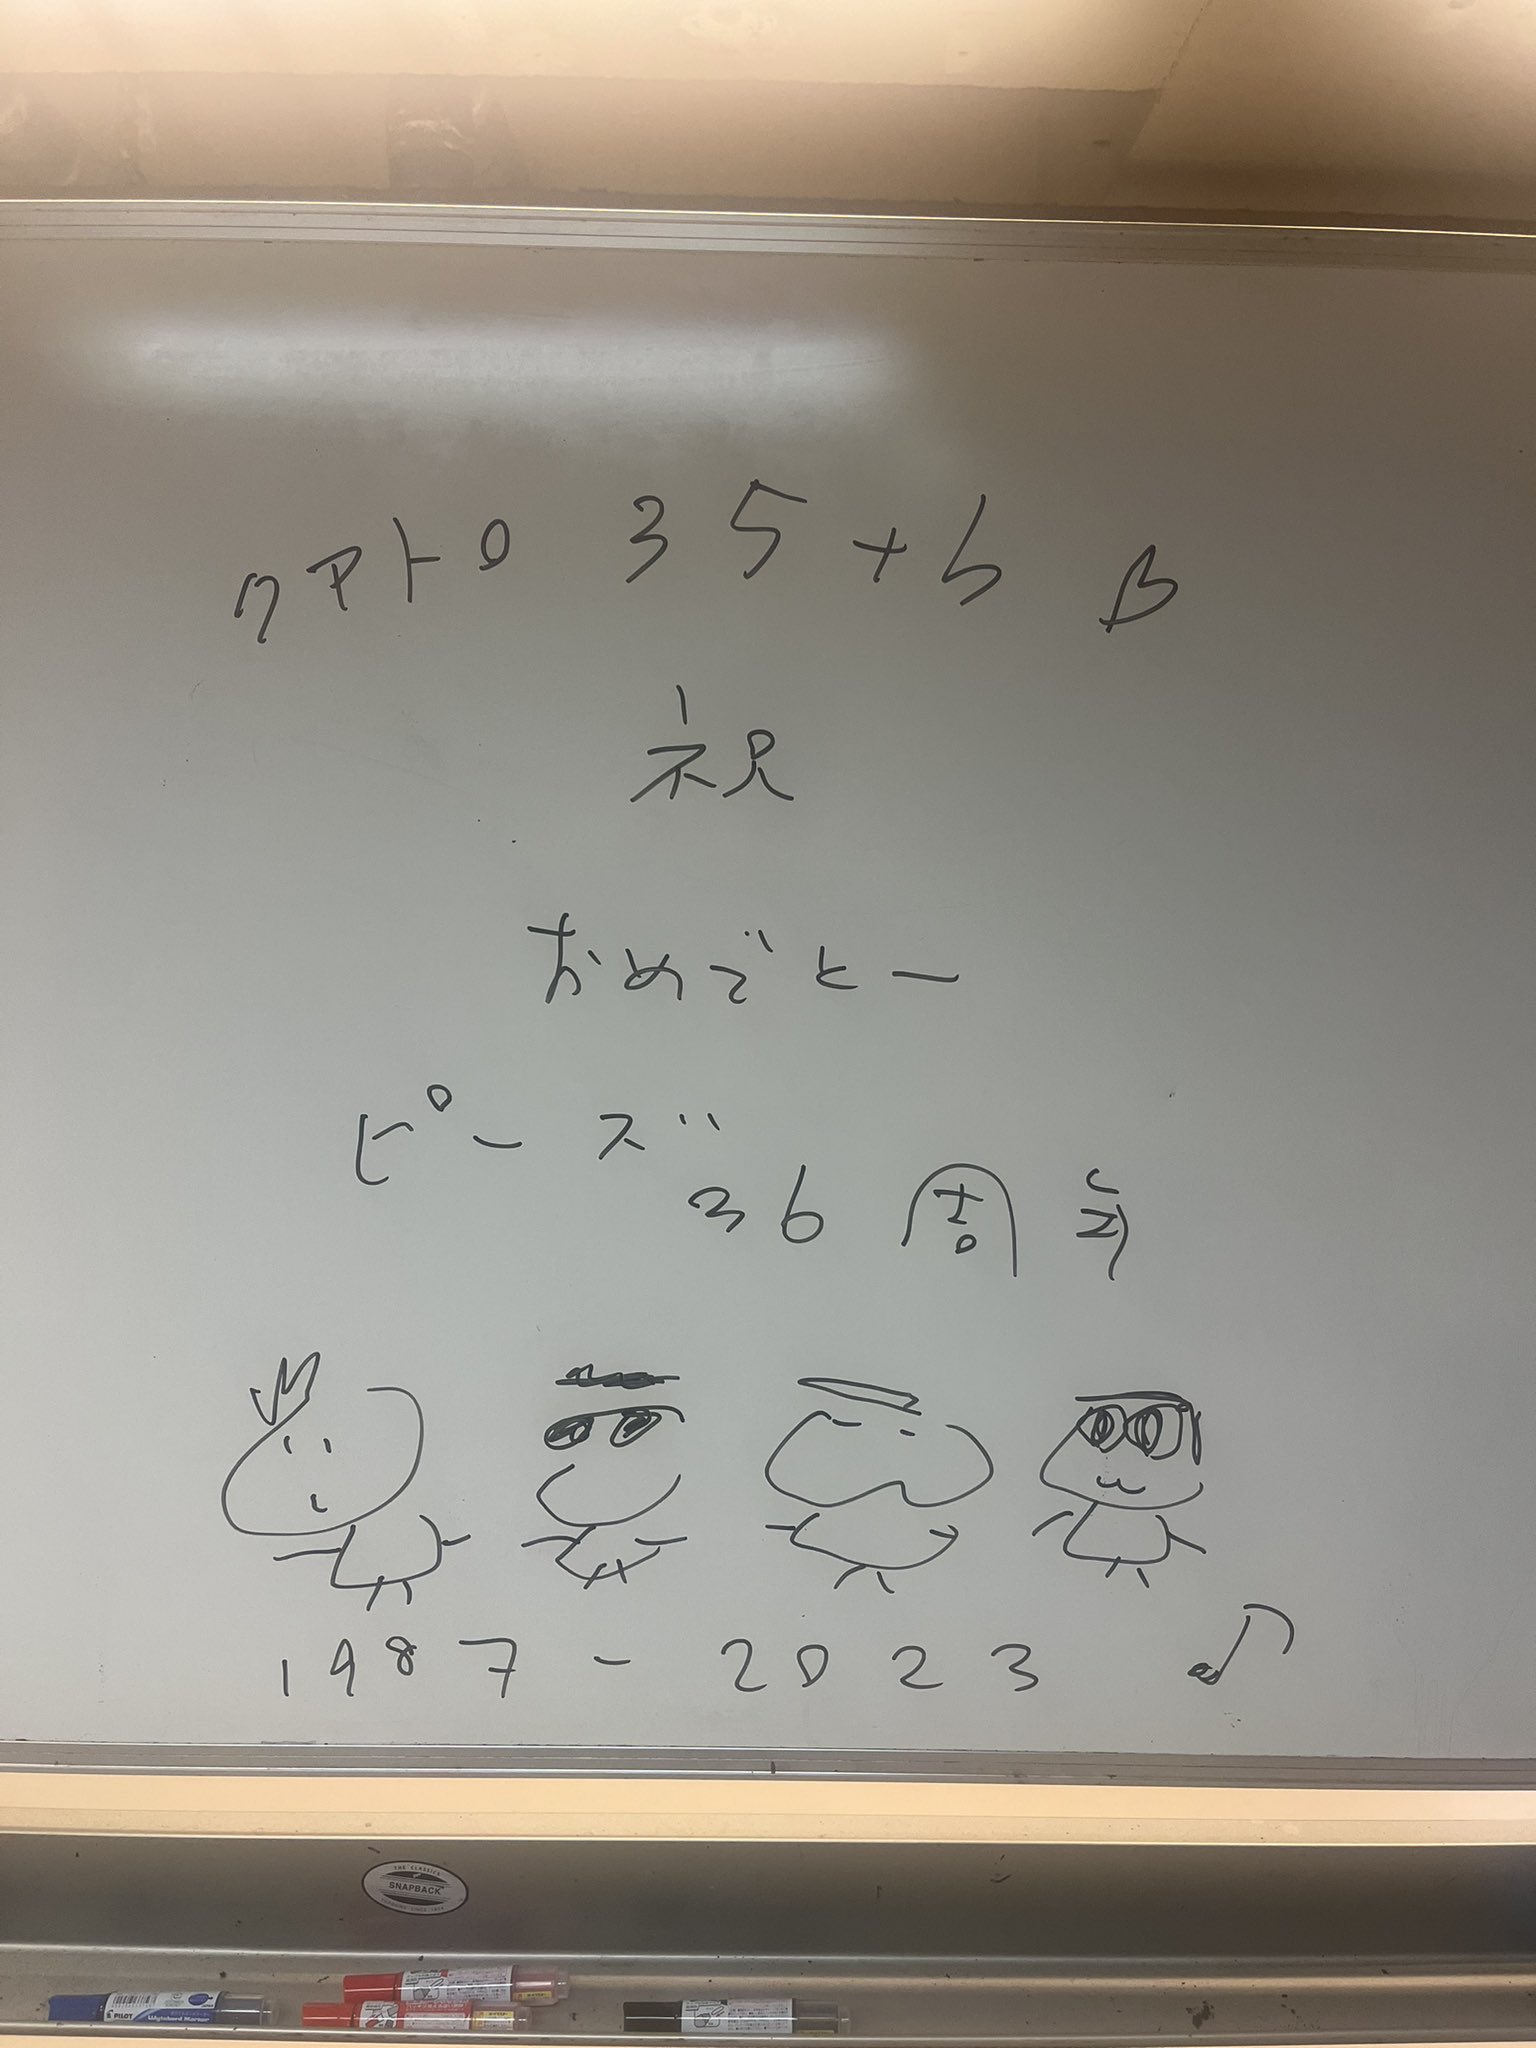 クアトロ 35+6 B
祝
おめでとー
ピーズ
36周年
1987-2023 ♪
THE CLASSICS
SNAPBACK
PILOT
Wytebord Marker